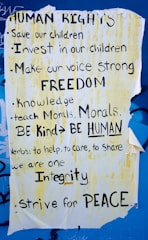 HUMAN RIGHTS
• Save our children
• Invest in our children
• Make our voice strong
FREEDOM
• Knowledge
• teach Morals, Morals,
BE Kind → BE HUMAN
to help, to care, to share
we are one
Integrity
• Strive for PEACE